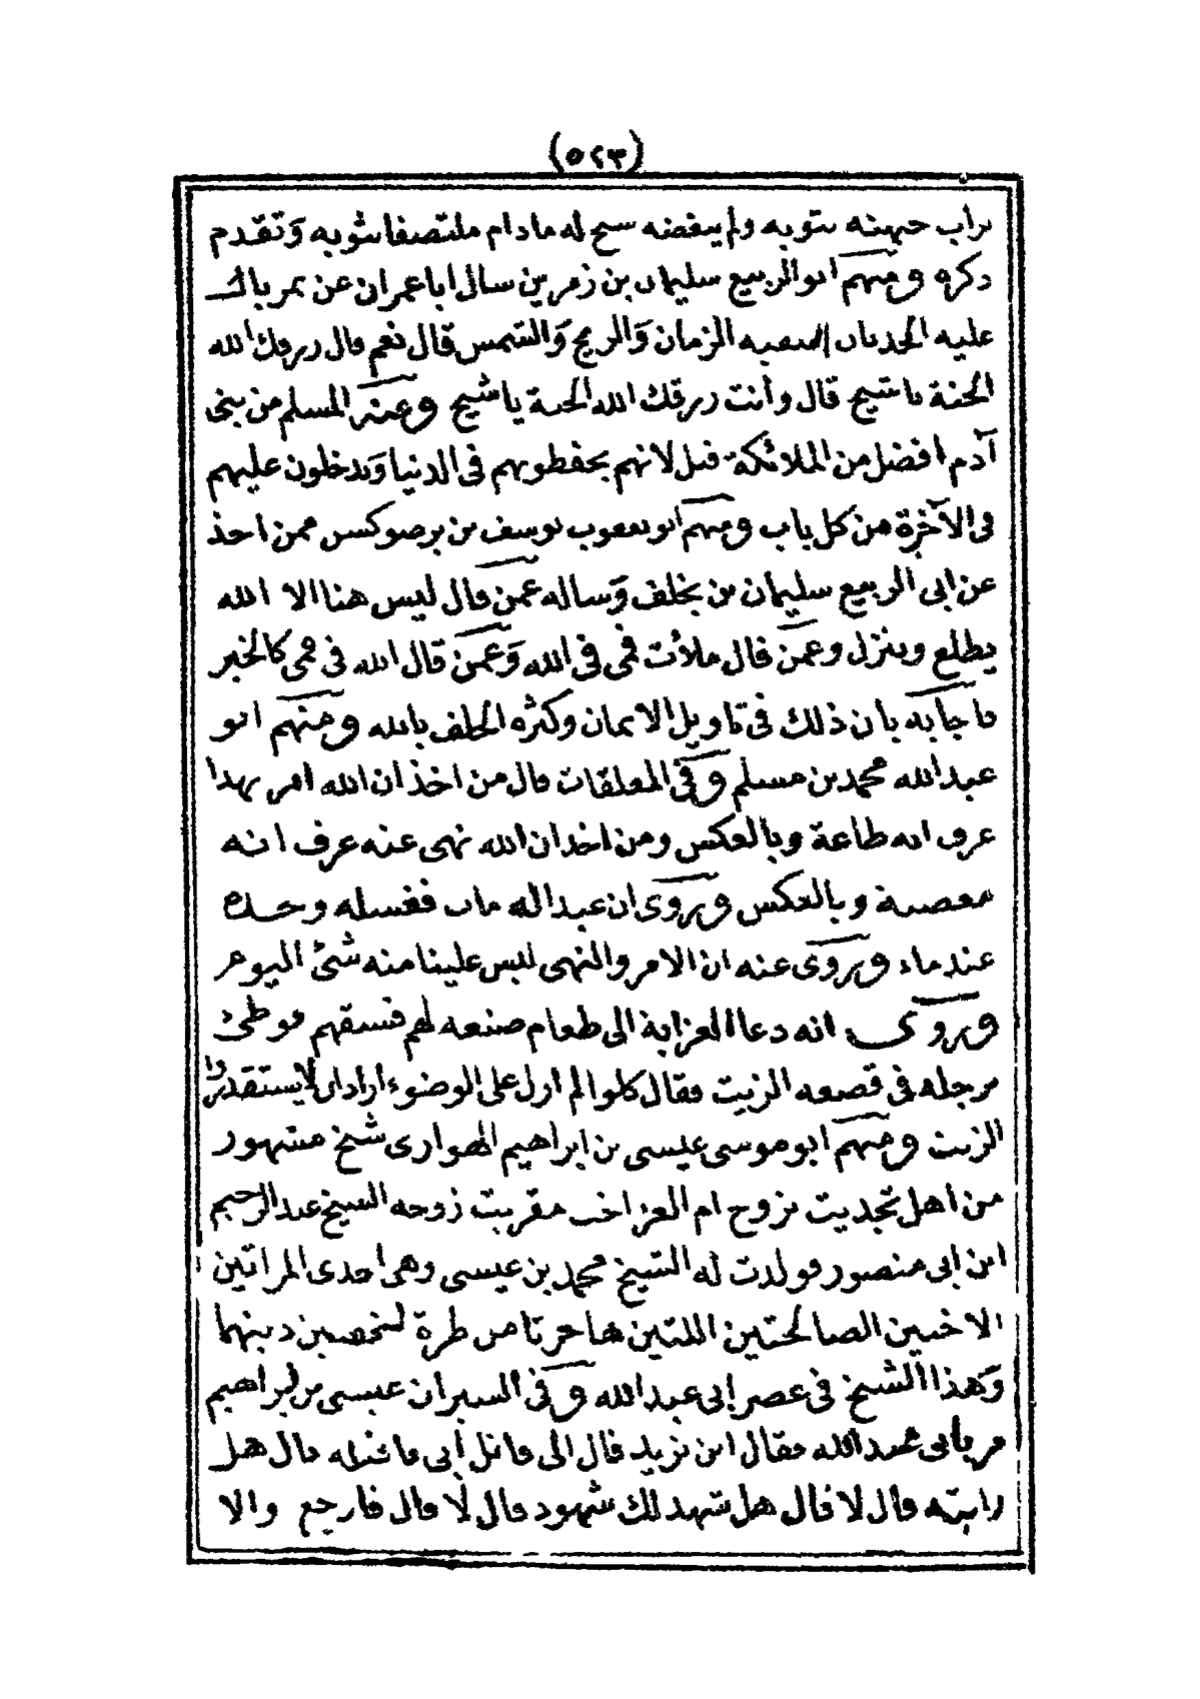 (٥٢٣)
تراب جبهته بثوبه ولم ينفضه سبح له مادام ملتصقا بثوبه وتقدم
ذكره ومنهم ابو الربيع سليمان بن زمرين سال ابا عمران عن
عليه الجديدان الزمان والريح والشمس قال نعم قال رزقك الله
الجنة يا شيخ قال وأنت رزقك الله الجنة يا شيخ وعنه المسلم من بنى
آدم افضل من الملائكة قيل لانهم يحفظونهم فى الدنيا ويدخلون عليهم
فى الآخرة من كل باب ومنهم ابو يعقوب يوسف بن يرصوكسن ممن اخذ
عن ابى الربيع سليمان بن يخلف وساله عمن قال ليس هنا الا الله
يطلع وينزل وعمن قال ملأت فمى فى الله وعمن قال الله فى فمى كالخبز
فاجابه بان ذلك فى تاويل الايمان وكثرة الحلف بالله ومنهم ابو
عبدالله محمد بن مسلم وفى المعلقات قال من اخذ ان الله امر بهذا
عرف انه طاعة وبالعكس ومن اخذ ان الله نهى عنه عرف انه
معصية وبالعكس وروى ان عبدالله مات فغسله وحده
عند ماء وروى عنه ان الامر والنهى ليس علينا منه شئ اليوم
وروى انه دعا العزابة الى طعام صنعه لهم فسبقهم فوطئ
برجله فى قصعة الزيت فقال كلوا لم ازل على الوضوء اراد ان لا يستقذروا
الزيت ومنهم ابوموسى عيسى بن ابراهيم الهوارى شيخ مشهور
من اهل تجديت تزوج ام العز اخت مقرنت زوجة الشيخ عبدالرحيم
ابن ابى منصور فولدت له الشيخ محمد بن عيسى وهى احدى المراتين
الاختين الصالحتين اللتين هاجرتا من طرة لتحصين دينهما
وهذا الشيخ فى عصر ابى عبدالله وفى السير ان عيسى بن ابراهيم
مر بأبى عبدالله فقال اين تريد قال الى قاتل أبى فاقتله قال هل
رايته قال لا قال هل شهد لك شهود قال لا قال فارجع والا